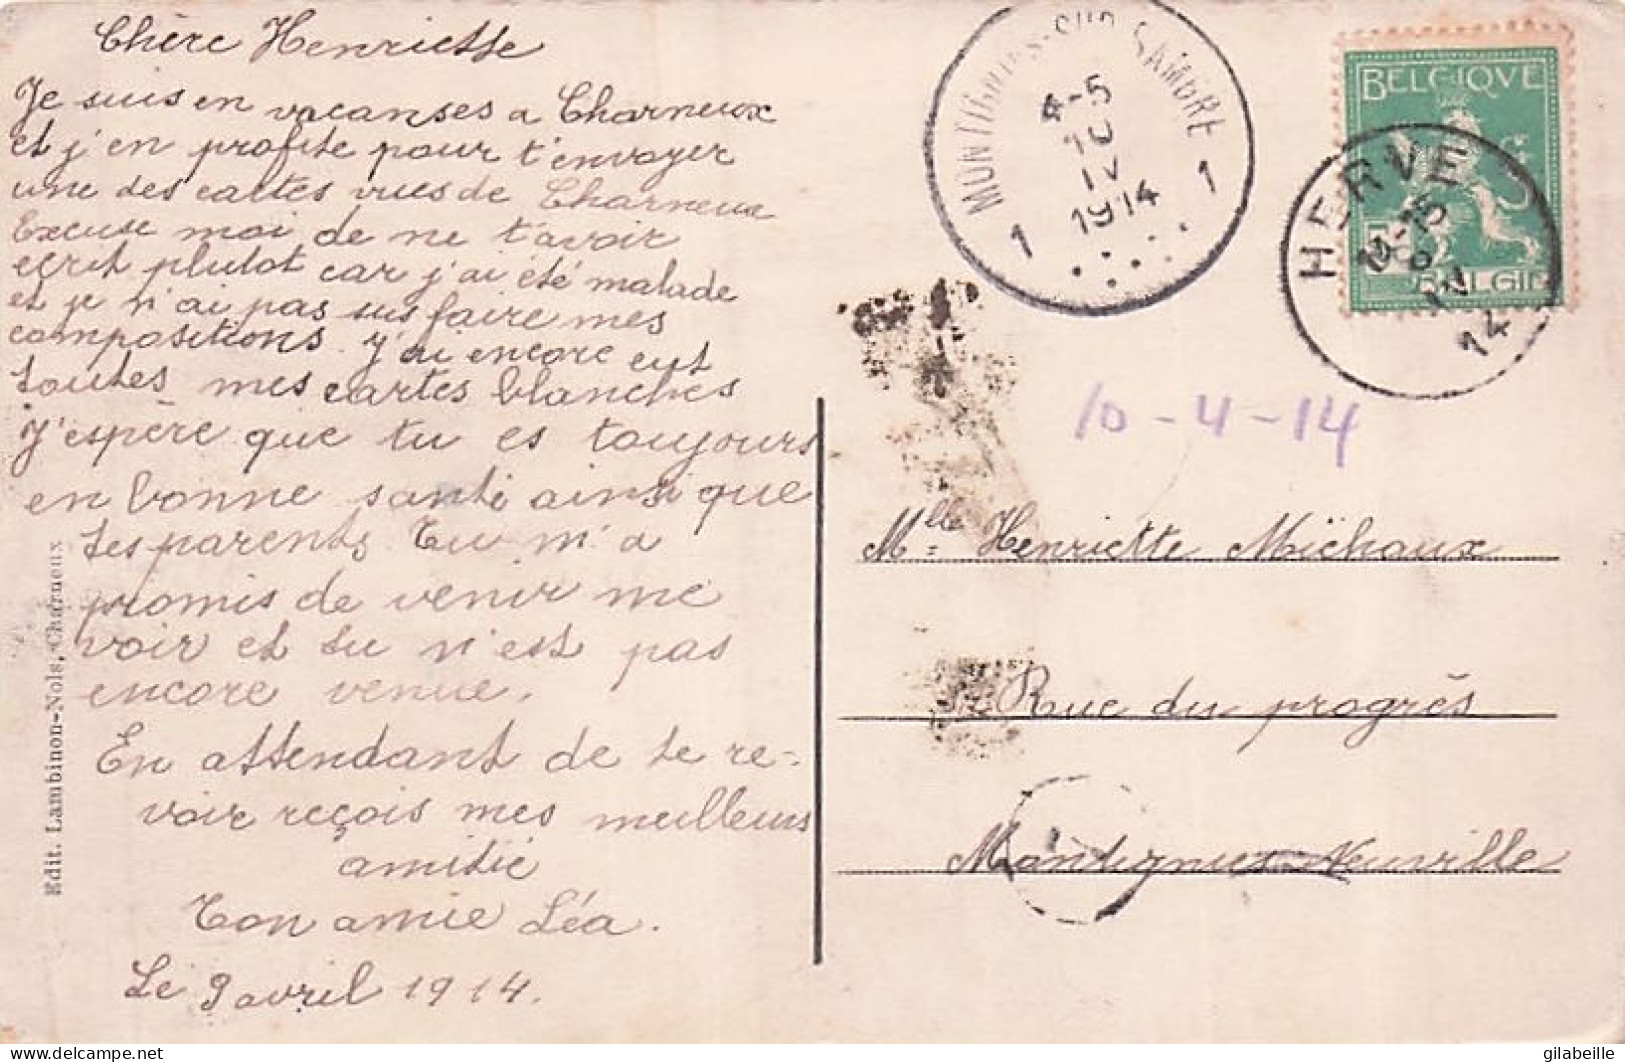 Chère Henriette
Je suis en vacanses a Charneux
et j'en profite pour t'envoyer
une des caltes vues de Charneux
Excuse moi de ne t'avoir
ecrit plutot car j'ai été malade
et je n'ai pas sus faire mes
compositions. j'ai encore eut
toutes mes cartes blanches
J'espère que tu es toujours
en bonne santé ainsi que
tes parents. Tu m'a
promis de venir me
voir et tu n'est pas
encore venue.
En attendant de te re-
voir reçois mes meilleurs
amitié
Ton amie Léa.
Le 9 avril 1914.
Edit. Lambinon-Nols, Charneux
MONTIGNIES-SUR-SAMBRE
4-5
10
IV
1914
1 1
BELGIQUE
5
BELGIE
HERVE
14-15
9
IV
14
10-4-14
Mlle Henriette Michaux
Rue du progrès
Montignies Neuville
delcampe.net
gilabeille